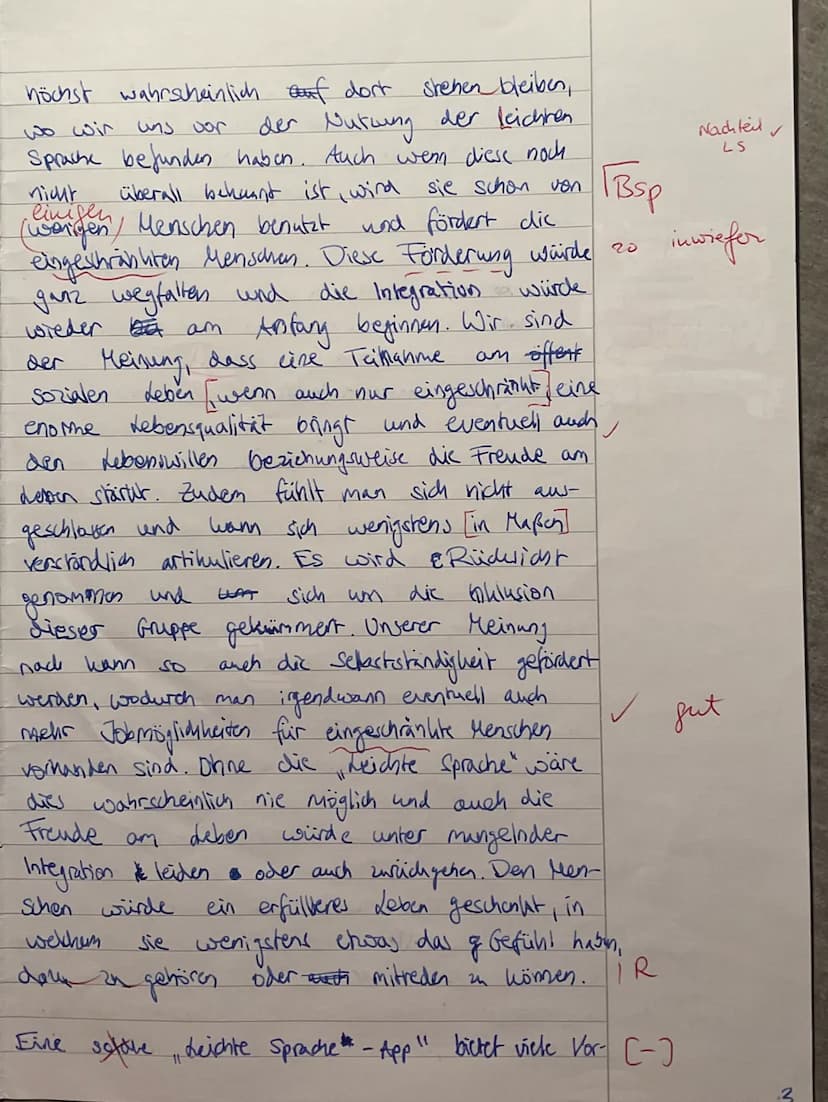 höchst wahrscheinlich auf dort stehen bleiben,
wo wir uns vor der Nutzung der leichten
Nachteil ✓
LS
Sprache befunden haben. Auch wenn diese noch
nicht überall bekannt ist, wird sie schon von
Bsp
einigen
(wenigen) Menschen benutzt und fördert die
eingeschränkten Menschen. Diese Förderung würde
inwiefern
ganz wegfallen und die Integration würde
wieder am Anfang beginnen. Wir sind
der Meinung, dass eine Teilnahme am öffent
sozialen Leben [, wenn auch nur eingeschränkt,] eine
enorme Lebensqualität bringt und eventuell auch ✓
den Lebenswillen beziehungsweise die Freude am
Leben stärkt. Zudem fühlt man sich nicht aus-
geschlossen und kann sich wenigstens [in Maßen]
verständlich artikulieren. Es wird Rücksicht
genommen und sich um die Inklusion
dieser Gruppe gekümmert. Unserer Meinung
nach kann so auch die Selbstständigkeit gefördert
werden, wodurch man irgendwann eventuell auch
✓ gut
mehr Jobmöglichkeiten für eingeschränkte Menschen
vorhanden sind. Ohne die „Leichte Sprache“ wäre
dies wahrscheinlich nie möglich und auch die
Freude am Leben würde unter mangelnder
Integration leiden oder auch zurückgehen. Den Men-
schen würde ein erfüllteres Leben geschenkt, in
welchem sie wenigstens etwas das Gefühl haben,
dazu zu gehören oder auch mitreden zu können.
| R
Eine solche „Leichte Sprache-App“ bietet viele Vor-
[-]
3